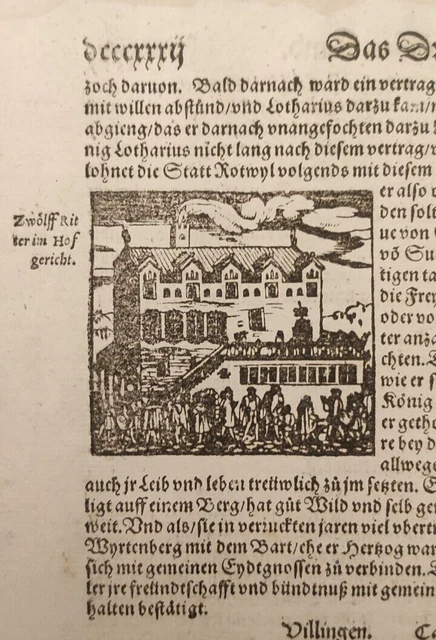 dcccxxxij Das
zoch daruon. Bald darnach ward ein vertrag
mit willen abstünd/vnd Lotharius darzu
abgieng/das er darnach vnangefochten darzu
nig Lotharius nicht lang nach diesem vertrag/
lohnet die Statt Rotwyl volgends mit diesem
er also
den solt
Zwölff Rit
ter im Hof
gericht.
ue von
võ Su
tigen ta
die Frey
oder vo
ter anzå
chten.
wie er
König
er getho
re bey d
allwege
auch jr Leib vnd leben treüwlich zü jm setzten.
ligt auff einem Berg/hat güt Wild vnd selb
weit. Vnd als/sie in verruckten jaren viel
Wyrtenberg mit dem Bart/ehe er Hertzog war
sich mit gemeinen Eydtgnossen zü verbinden.
ler jre freündtschafft vnd bündtnuß mit gemein
halten bestätigt.
Villingen.